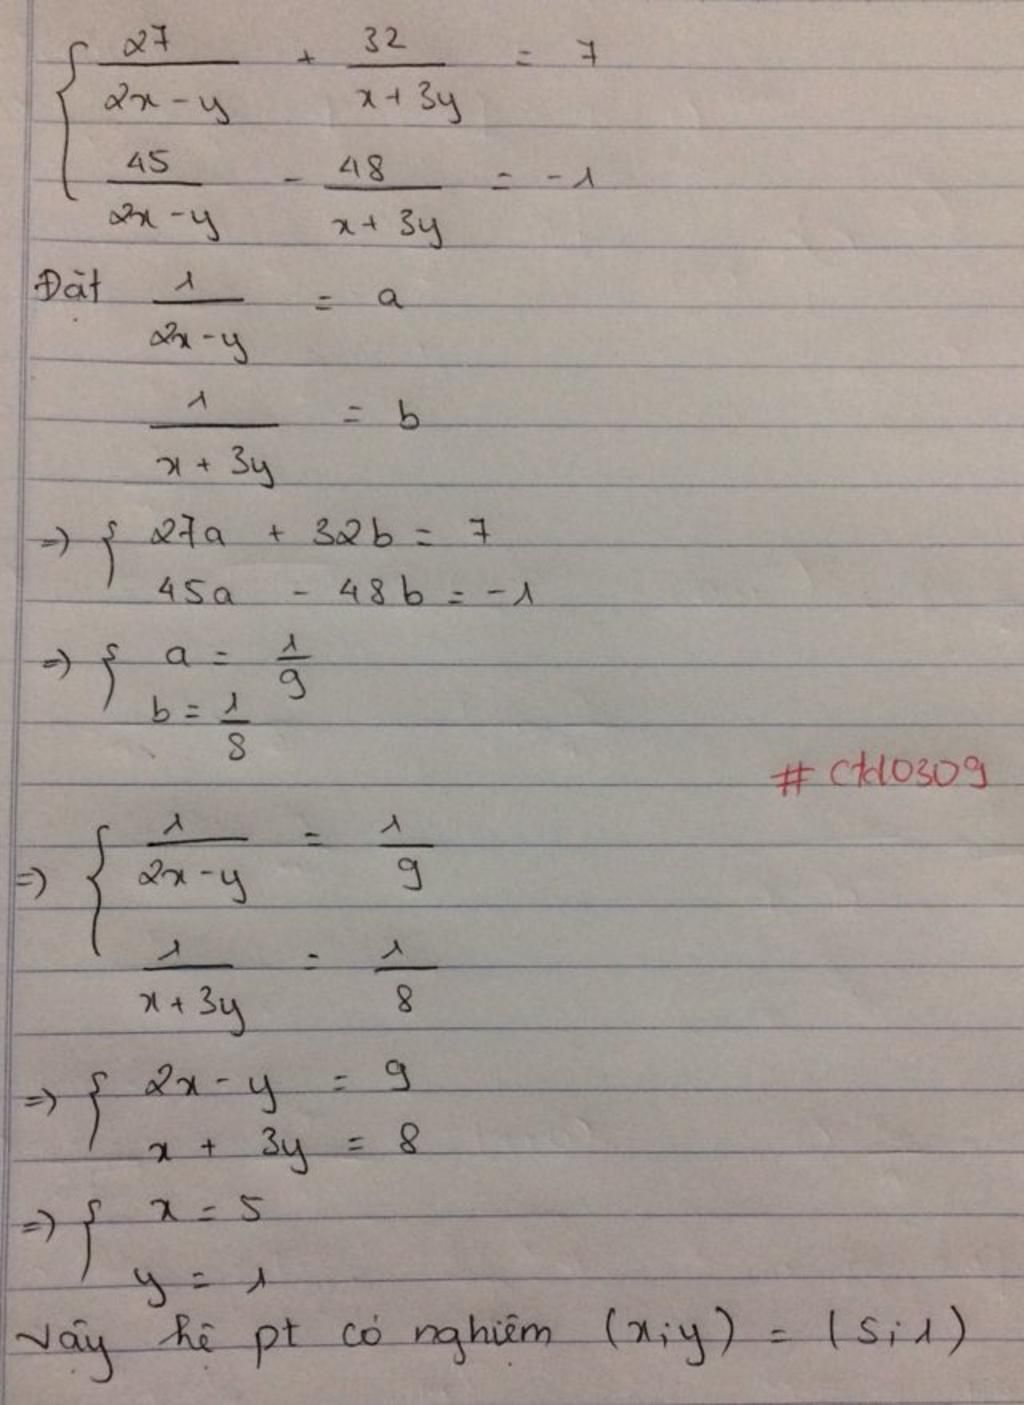 27/(2x-y) + 32/(x+3y) = 7
45/(2x-y) - 48/(x+3y) = -1
Đặt 1/(2x-y) = a
1/(x+3y) = b
=> { 27a + 32b = 7
45a - 48b = -1
=> { a = 1/9
b = 1/8
#ctd0309
=> { 1/(2x-y) = 1/9
1/(x+3y) = 1/8
=> { 2x-y = 9
x + 3y = 8
=> { x = 5
y = 1
Vậy hệ pt có nghiệm (x;y) = (5;1)